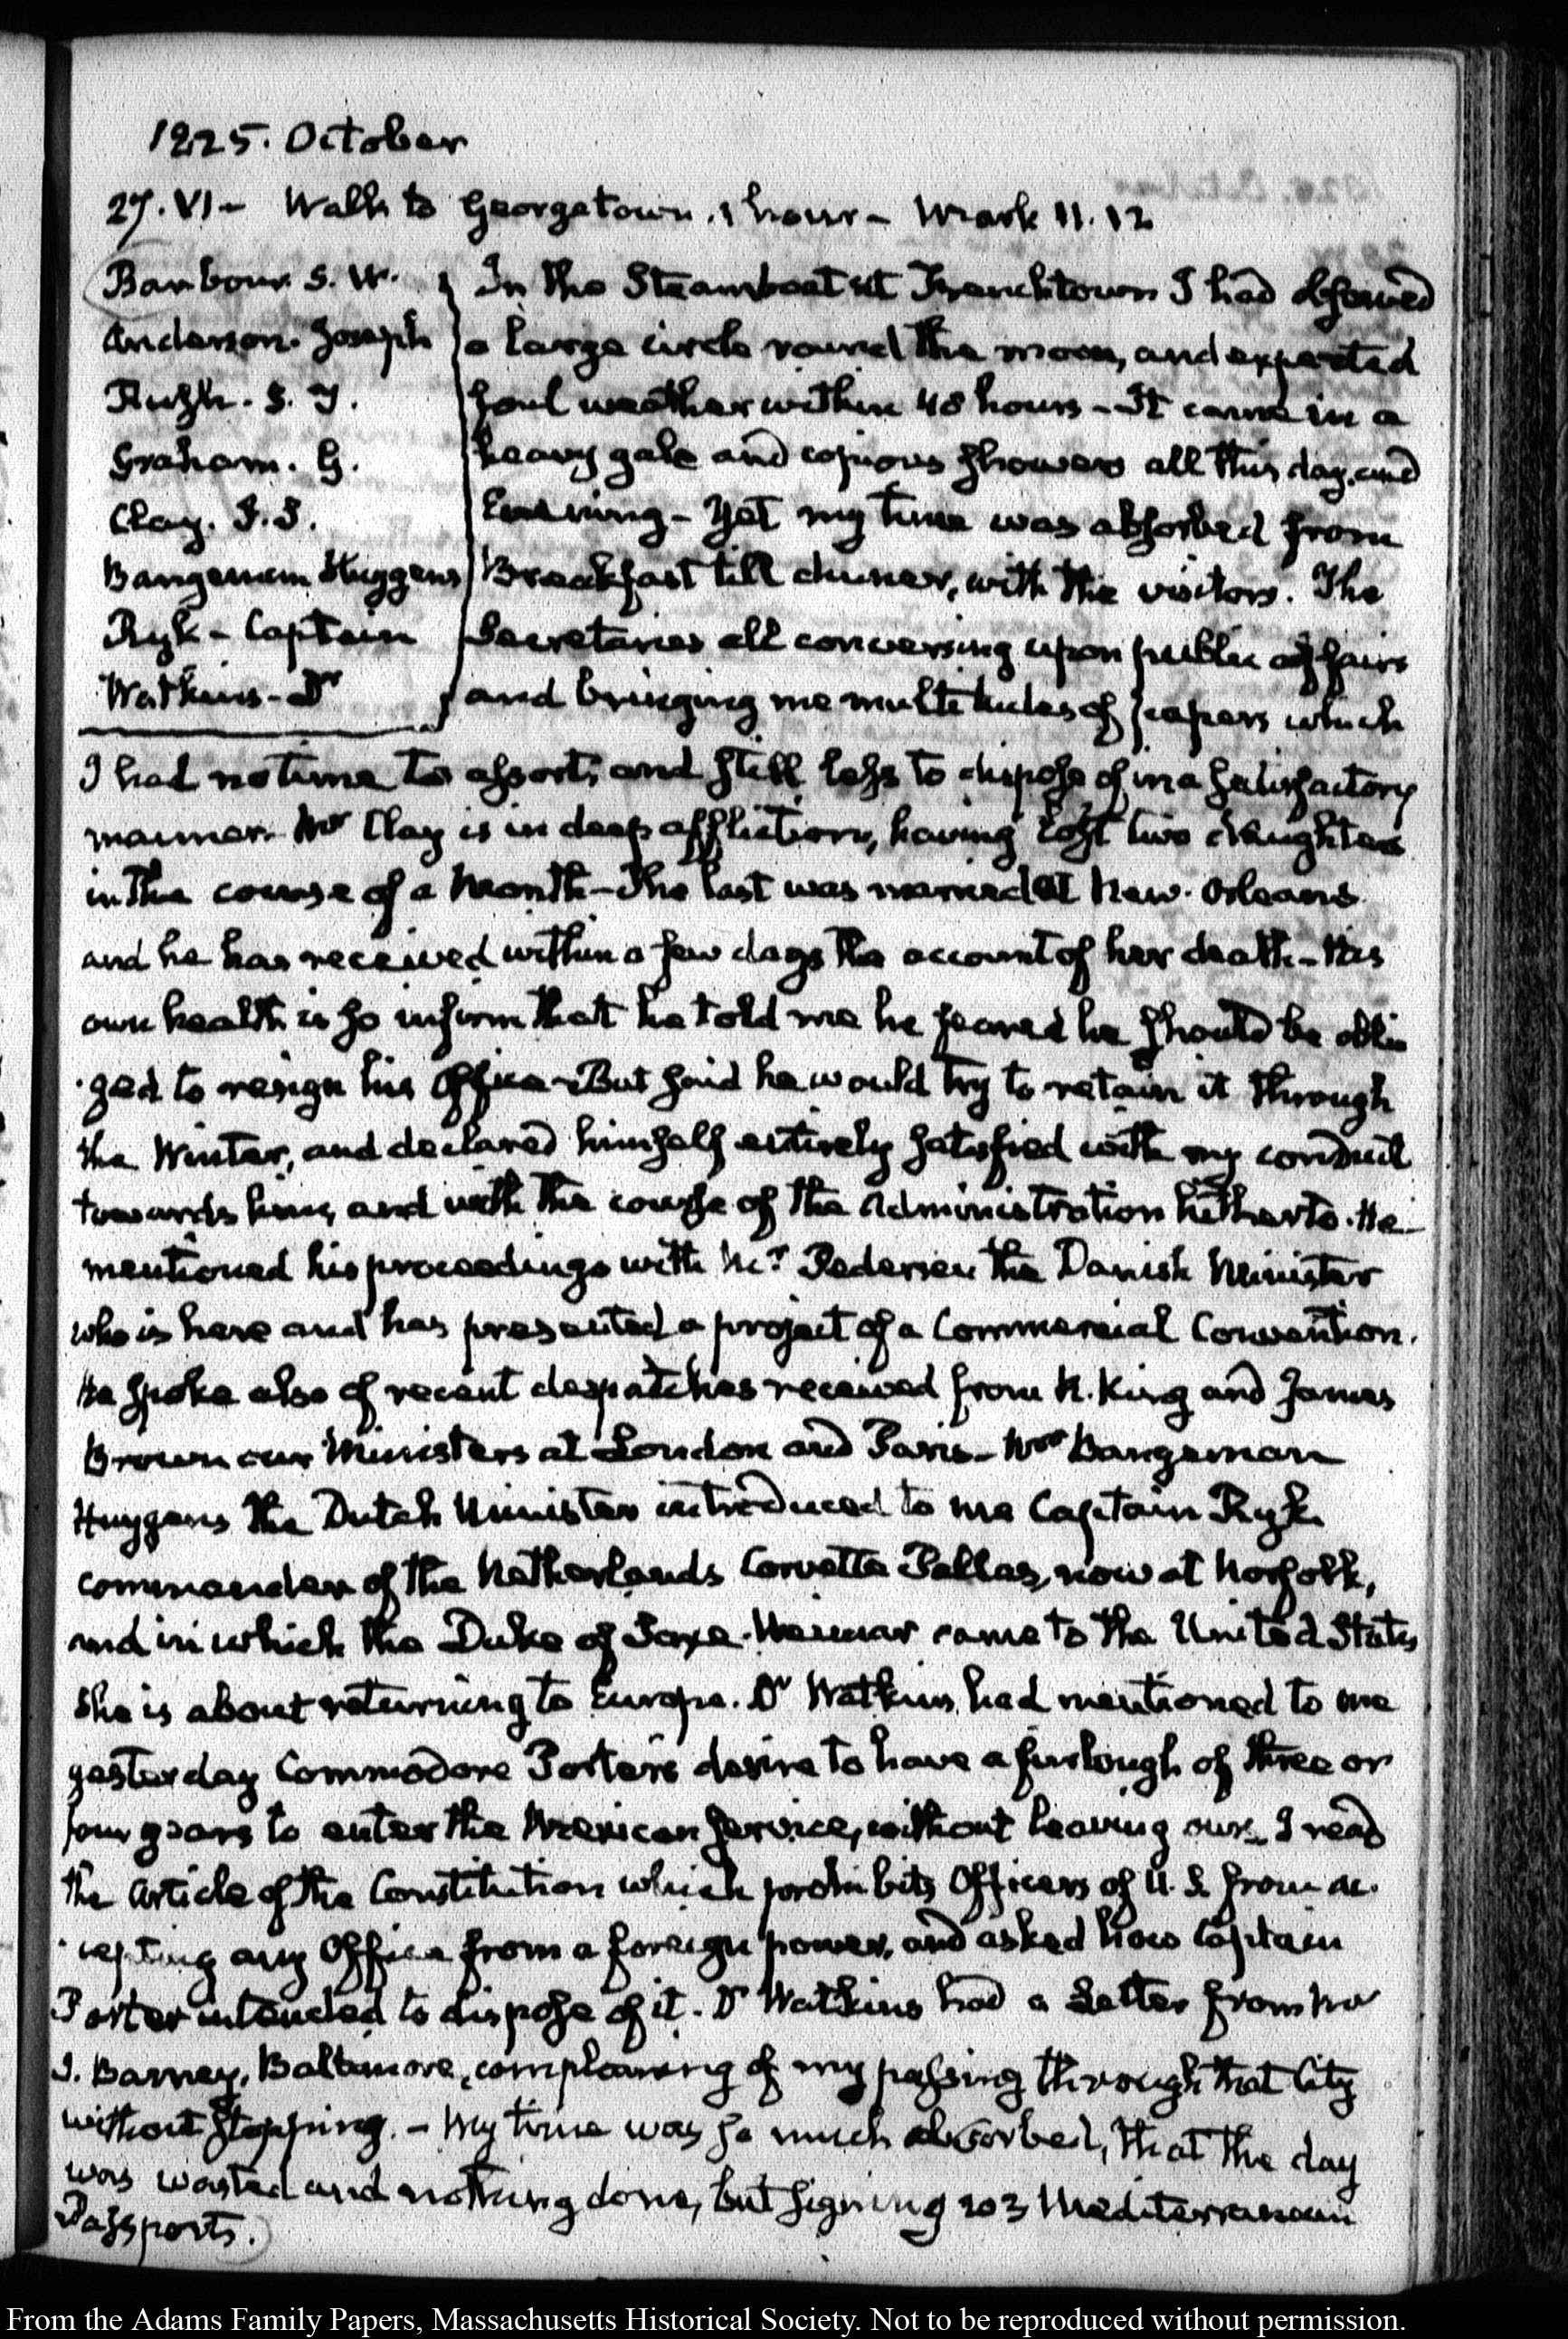 1825. October
27. VI - Walk to Georgetown. 1 hour - Mark 11. 12
Barbour. S. W.
Anderson. Joseph
Rush. S. T.
Graham. G.
Clay. S. S.
Bangeman Huygens
Ryk - Captain
Watkins - Dr
In the Steamboat at Frenchtown I had observed
a large circle round the moon, and expected
foul weather within 48 hours - It came in a
heavy gale and copious showers all this day, and
Evening - Yet my time was absorbed from
Breakfast till dinner, with the visitors. The
Secretaries all conversing upon public affairs
and bringing me multitudes of papers which
I had no time to assort, and still less to dispose of in a satisfactory
manner. Mr Clay is in deep affliction, having lost two daughters
in the course of a Month - The last was married at New-Orleans
and he has received within a few days the account of her death - His
own health is so infirm that he told me he feared he should be obli
-ged to resign his Office - But said he would try to retain it through
the Winter, and declared himself entirely satisfied with my conduct
towards him, and with the course of the Administration hitherto. He
mentioned his proceedings with Mr Pedersen the Danish Minister
who is here and has presented a project of a Commercial Convention.
He spoke also of recent despatches received from R. King and James
Brown our Ministers at London and Paris - Mr Bangeman
Huygens the Dutch Minister introduced to me Captain Ryk
commander of the Netherlands Corvette Pallas, now at Norfolk,
and in which the Duke of Saxe-Weimar came to the United States
She is about returning to Europe. Dr Watkins had mentioned to me
yesterday Commodore Porter's desire to have a furlough of three or
four years to enter the Mexican service, without leaving ours. I read
the Article of the Constitution which prohibits Officers of U. S. from ac-
-cepting any Office from a foreign power, and asked how Captain
Porter intended to dispose of it. Dr Watkins had a Letter from Mr
J. Barney, Baltimore, complaining of my passing through that City
without stopping. - My time was so much absorbed, that the day
was wasted and nothing done, but signing 203 Mediterranean
Passports.
From the Adams Family Papers, Massachusetts Historical Society. Not to be reproduced without permission.